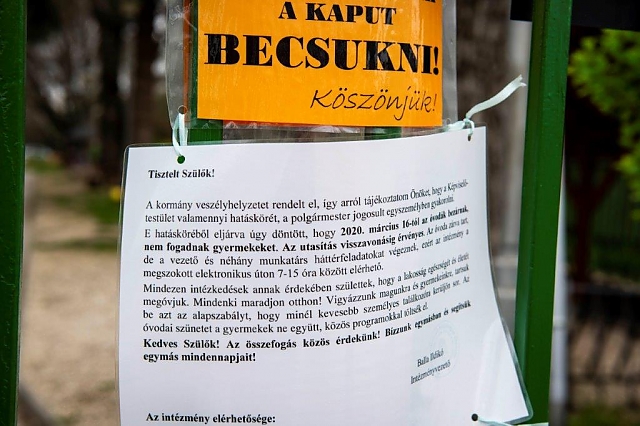 A KAPUT
BECSUKNI!
Köszönjük!
Tisztelt Szülők!
A kormány veszélyhelyzetet rendelt el, így arról tájékoztatom Önöket, hogy a Képviselő-
testület valamennyi hatáskörét, a polgármester jogosult egyszemélyben gyakorolni.
E hatásköréből eljárva úgy döntött, hogy 2020. március 16-tól az óvodák bezárnak,
nem fogadnak gyermekeket. Az utasítás visszavonásig érvényes. Az óvoda zárva tart,
de a vezető és néhány munkatárs háttérfeladatokat végeznek, ezért az intézmény a
megszokott elektronikus úton 7-15 óra között elérhető.
Mindezen intézkedések annak érdekében születtek, hogy a lakosság egészségét és életét
megóvjuk. Mindenki maradjon otthon! Vigyázzunk magunkra és gyermekeinkre, tartsuk
be azt az alapszabályt, hogy minél kevesebb személyes találkozóra kerüljön sor. Az
óvodai szünetet a gyermekek ne együtt, közös programokkal töltsék el.
Kedves Szülők! Az összefogás közös érdekünk! Bízzunk egymásban és segítsük
egymás mindennapjait!
Balla Ildikó
Intézményvezető
Az intézmény elérhetősége: